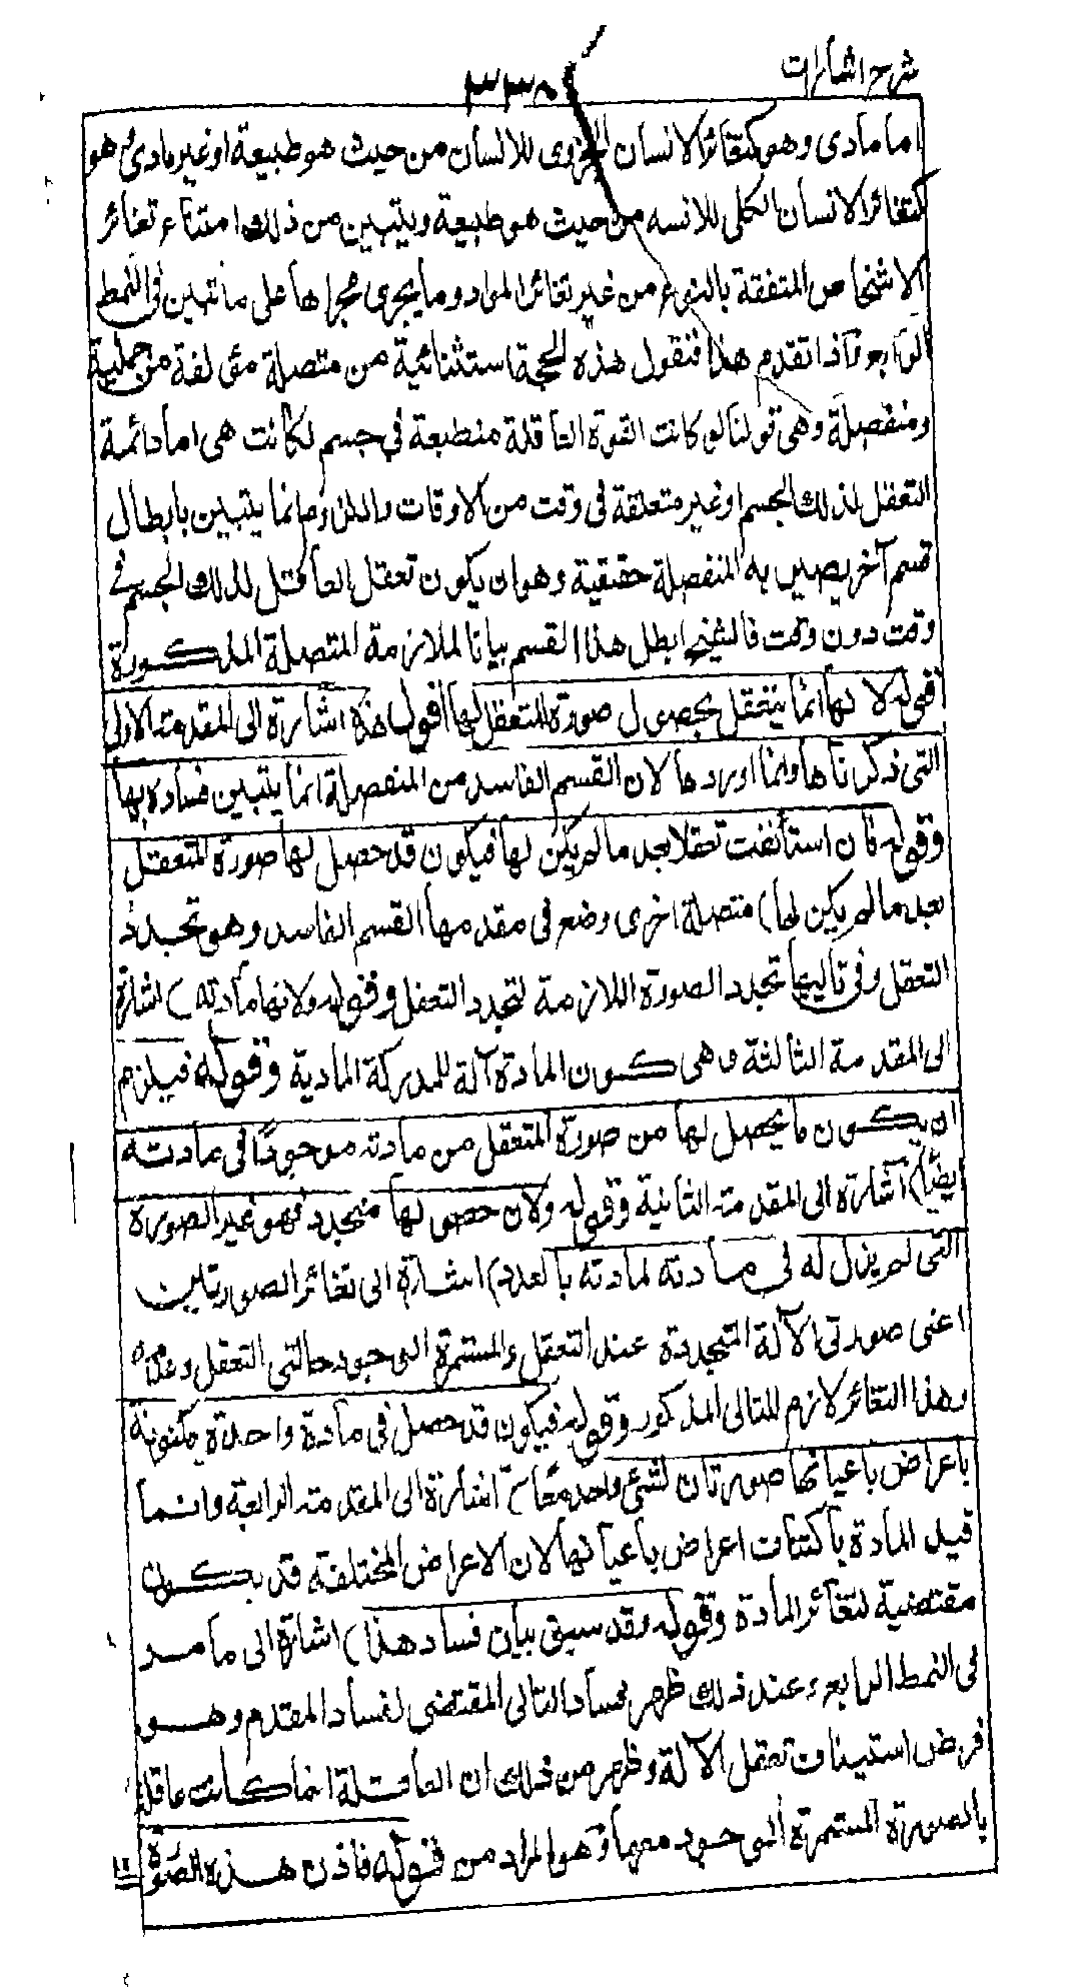 شرح اشارات
٣٣٨
اما مادى وهو كتغائر الانسان الجزوى للانسان من حيث هو طبيعة او غير مادى وهو
كتغائر الانسان الكلى للانسه من حيث هو طبيعة ويتبين من ذلك امتناع تغائر
الاشخاص المتفقة بالنوع من غير تغائر المواد وما يجرى مجراها على ما تبين فى النمط
الرابع فاذا تقدم هذا فنقول هذه الحجة استثنائية من متصلة مؤلفة من حملية
ومنفصلة وهى قولنا لو كانت القوة العاقلة منطبعة فى جسم لكانت هى اما دائمة
التعقل لذلك الجسم او غير متعلقة فى وقت من الاوقات واللزوم انما يتبين بابطال
قسم آخر يصير به المنفصلة حقيقية وهو ان يكون تعقل العاقل لذلك الجسم فى
وقت دون وقت فالشيخ ابطل هذا القسم بيانا لملازمة المتصلة المذكورة
قوله لانها انما يتعقل بحصول صورة المتعقل لها اقول هذه اشارة الى المقدمة الاولى
التى ذكرناها وانما اوردها لان القسم الفاسد من المنفصلة انما يتبين فساده بها
وقوله فان استأنفت تعقلا بعد ما لم يكن لها فيكون قد حصل لها صورة المتعقل
بعد ما لم يكن لها) متصلة اخرى وضع فى مقدمها القسم الفاسد وهو تجدد
التعقل وفى تاليها تجدد الصورة اللازمة لتجدد التعقل وقوله ولانها مادته) اشارة
الى المقدمة الثالثة وهى كون المادة آلة للمدركة المادية وقوله فيلزم
ان يكون ما يحصل لها من صورة المتعقل من مادته موجودا فى مادته
ايضا) اشارة الى المقدمة الثانية وقوله ولان حصولها متجدد فهو غير الصورة
التى لم يزل له فى مادته لمادته بالعدد) اشارة الى تغائر الصورتين
اعنى صورتى الآلة المتجددة عند التعقل والمستمرة الوجود حالتى التعقل وعدمه
وهذا التغائر لازم للتالى المذكور وقوله فيكون قد حصل فى مادة واحدة مكنوفة
باعراض باعيانها صورتان لشئ واحد معا) اشارة الى المقدمة الرابعة وانما
قيد المادة باكتناف اعراض باعيانها لان الاعراض المختلفة قد يكون
مقتضية لتغائر المادة وقوله وقد سبق بيان فساد هذا) اشارة الى ما مر
فى النمط الرابع وعند ذلك ظهر فساد التالى المقتضى لفساد المقدم وهو
فرض استيناف تعقل الآلة وظهر من ذلك ان العاقلة انما كانت عاقلة
بالصورة المستمرة الوجود معها وهو المراد من قوله فاذن هذه الصورة